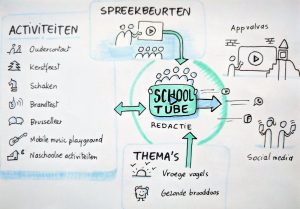 SPREEKBEURTEN
ACTIVITEITEN
Oudercontact
Kerstfeest
Schaken
Brandtest
Brusselleir
Mobile music playground
Naschoolse activiteiten
Appvalvas
SCHOOL
TUBE
REDACTIE
Social media
THEMA'S
Vroege vogels
Gezonde brooddoos